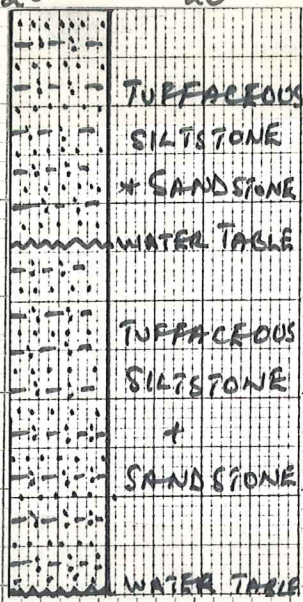 TUFFACEOUS
SILTSTONE
+ SANDSTONE
WATER TABLE
TUFFACEOUS
SILTSTONE
+
SANDSTONE
WATER TABLE